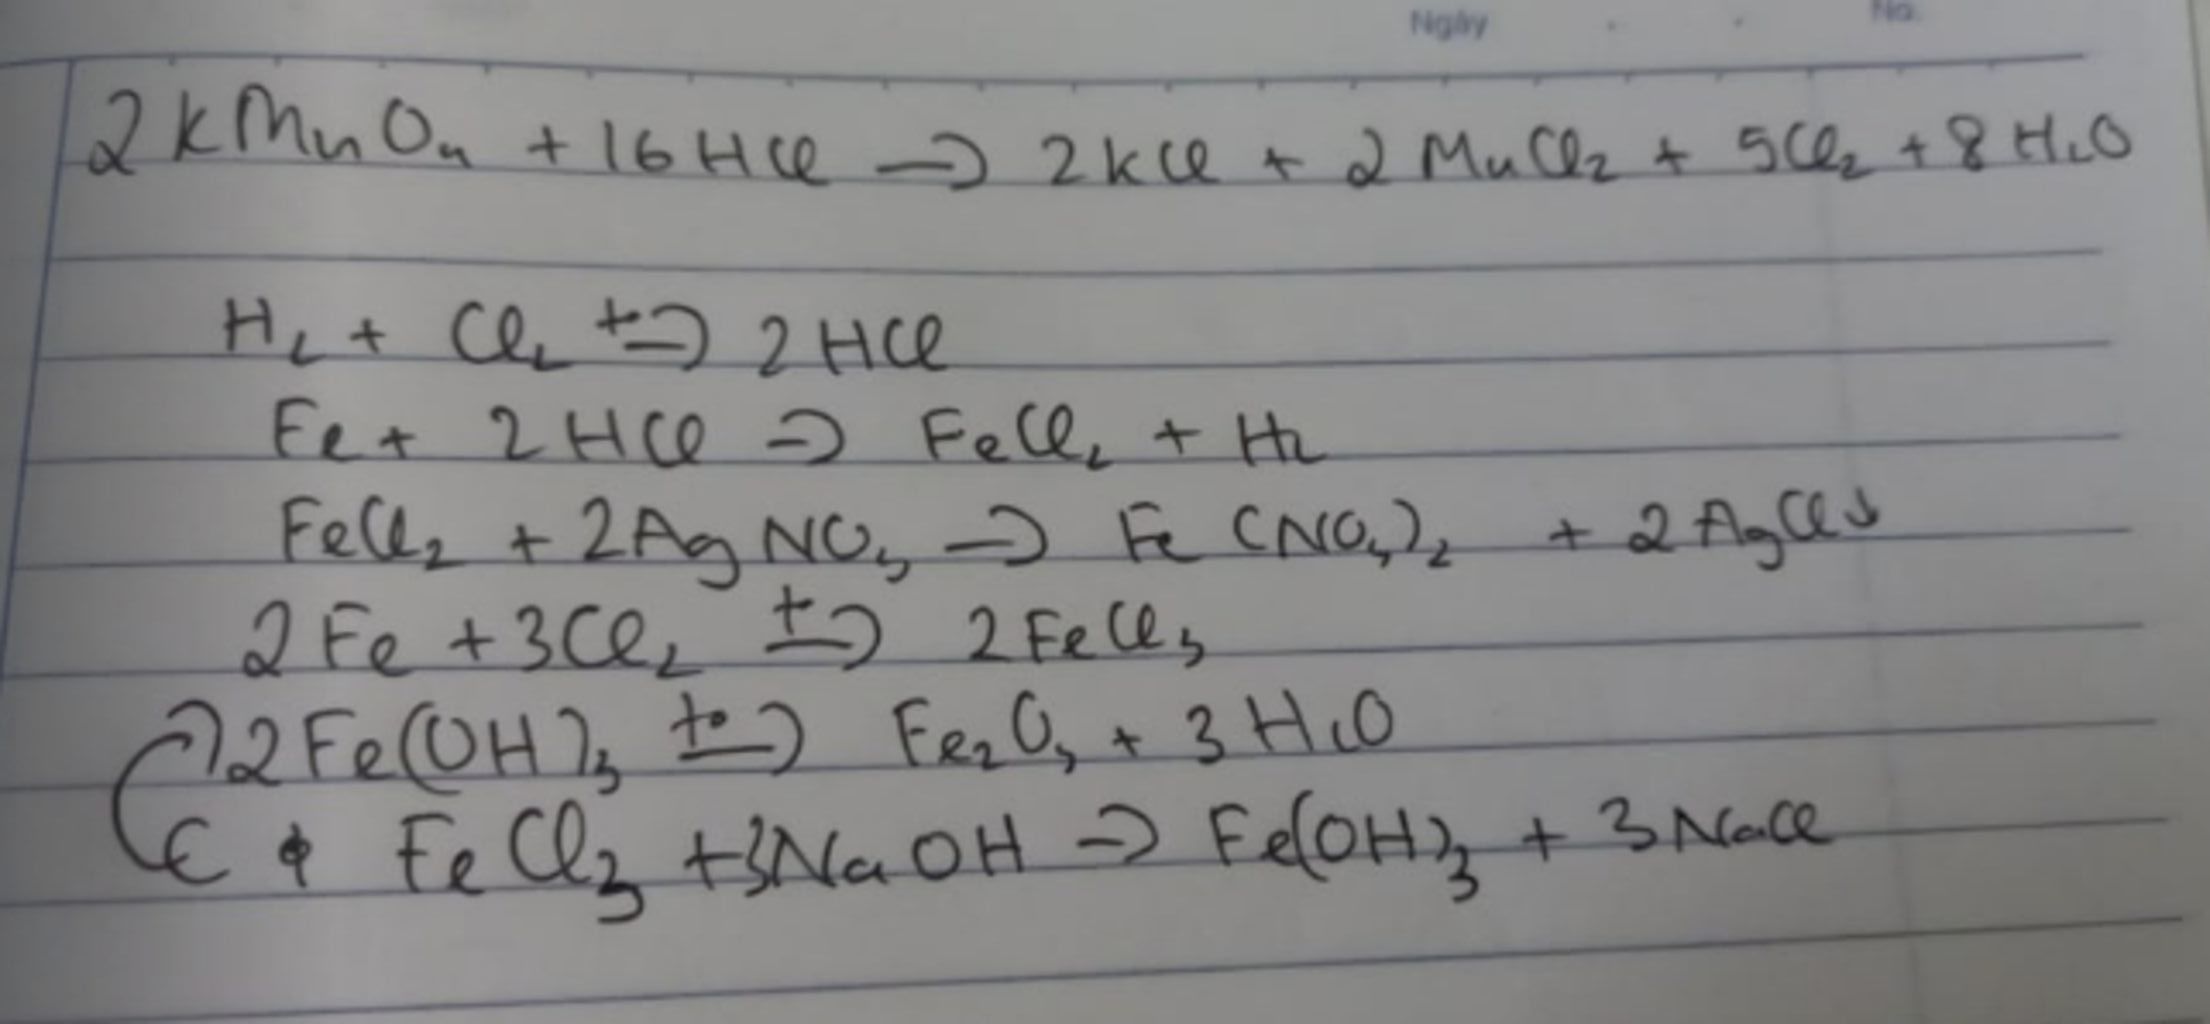 Ngày . . No.
2KMnO₄ + 16HCl → 2KCl + 2MnCl₂ + 5Cl₂ + 8H₂O
H₂ + Cl₂ t→ 2HCl
Fe + 2HCl → FeCl₂ + H₂
FeCl₂ + 2AgNO₃ → Fe(NO₃)₂ + 2AgCl↓
2Fe + 3Cl₂ t→ 2FeCl₃
2Fe(OH)₃ t°→ Fe₂O₃ + 3H₂O
FeCl₃ + 3NaOH → Fe(OH)₃ + 3NaCl